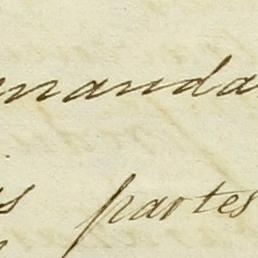 manda
s partes